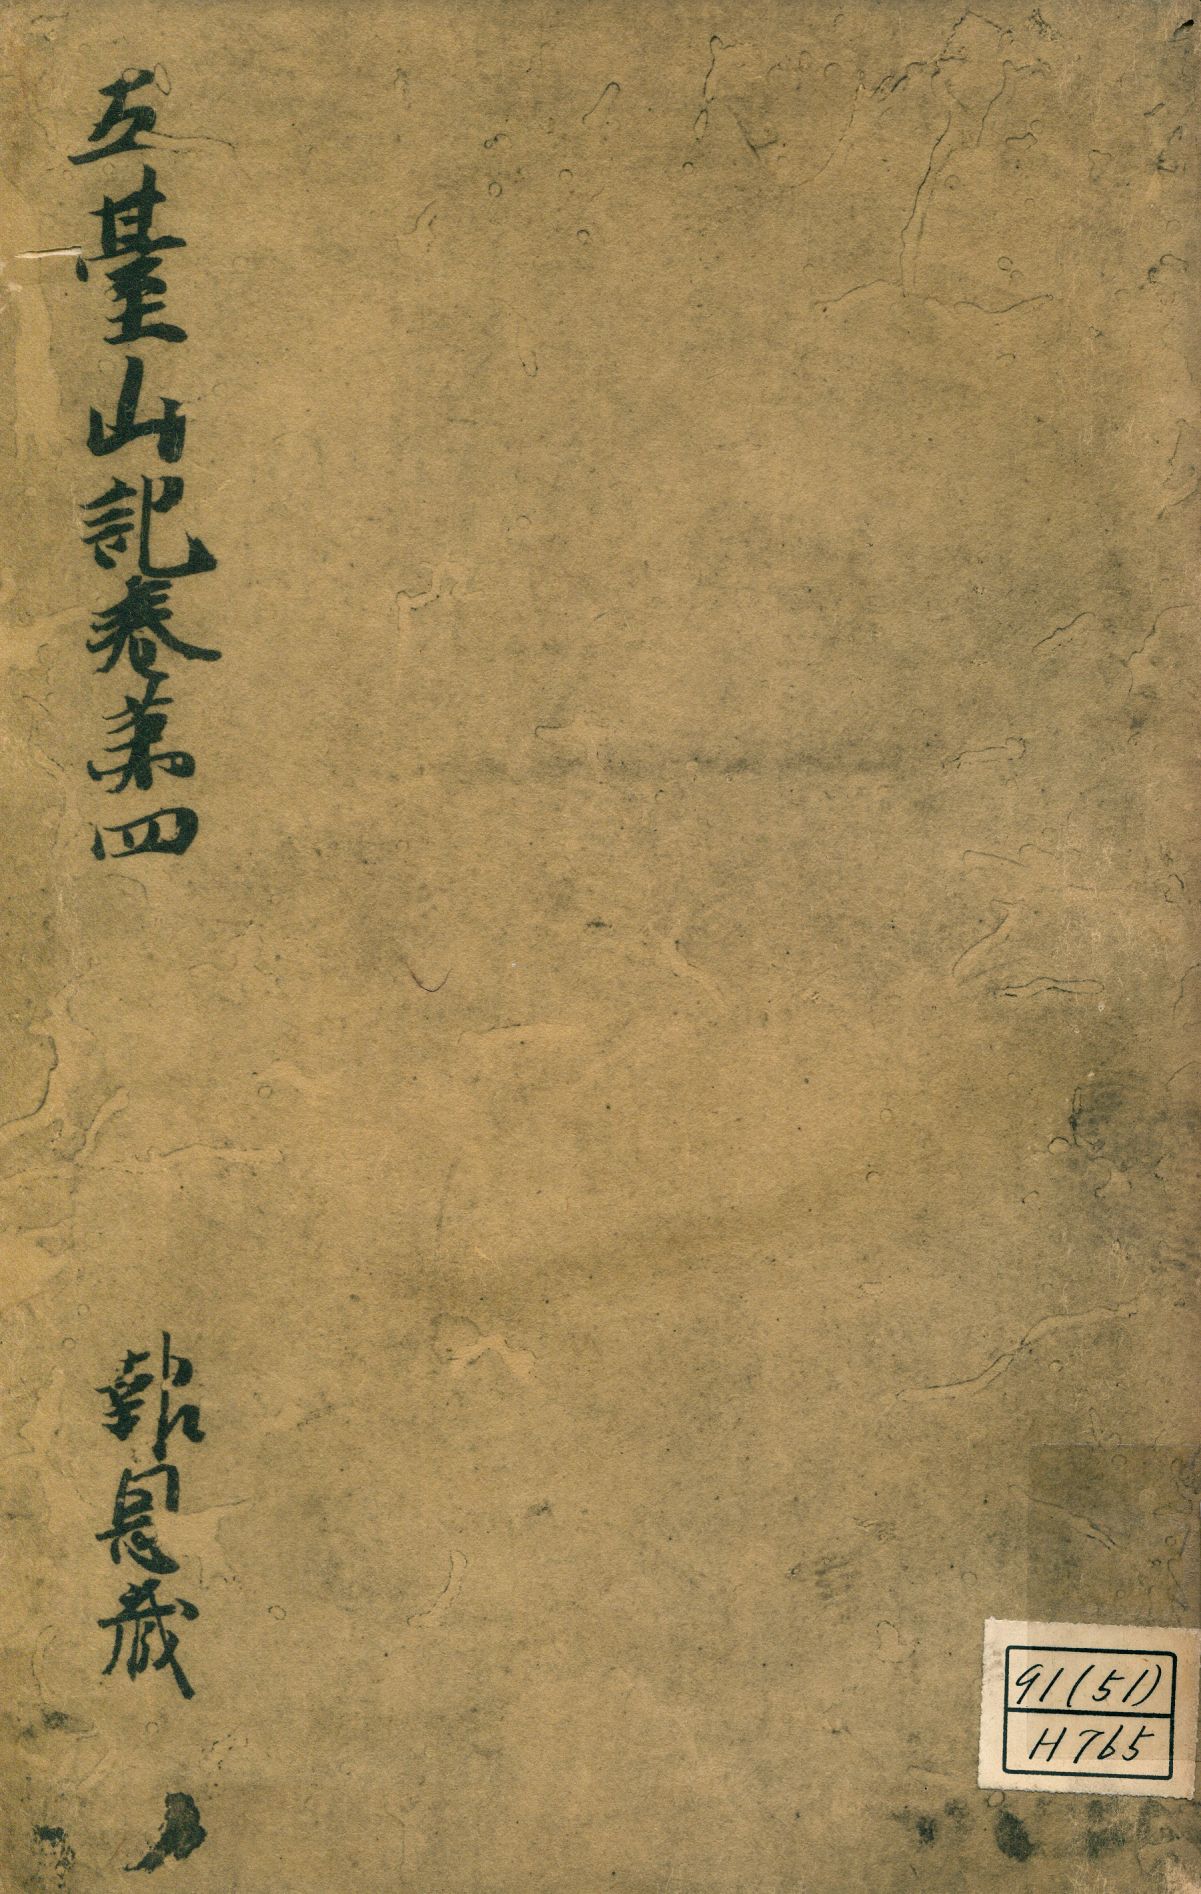 五臺山記卷第四
報恩藏
91(51)
H765